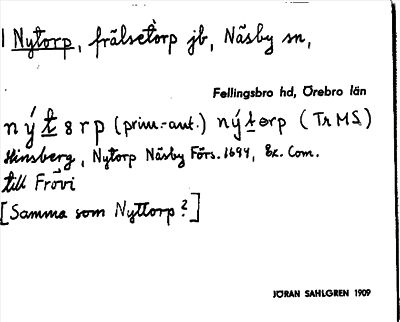 1 Nytorp, frälsetorp jb, Näsby sn,
Fellingsbro hd, Örebro län
ný t ɜ r p (prim.-aut.) ný t ɵrp (Tr MS)
Hinsberg, Nytorp Näsby Förs. 1694, Ex. Com.
till Frövi
[Samma som Nyttorp?]
JÖRAN SAHLGREN 1909